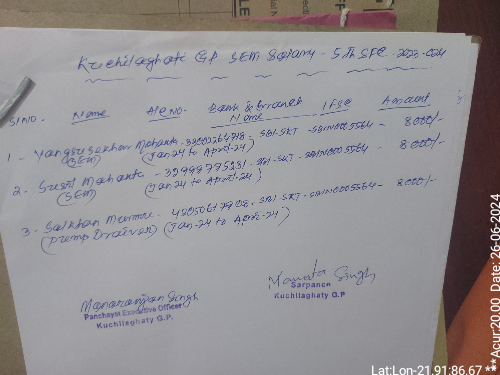 Kuchilaghati GP SEM Salary - 5th SFC - 2023-024
Sl NO. Name A/c No. Bank & Branch Name IFSC Amount
1 - Mahanta - SBI-SKT - SBIN0005564 - 8000/-
(SEM) (Jan-24 to April-24)
2. Susil Mahanta - SBI-SKT - SBIN0005564 - 8000/-
(SEM) (Jan-24 to April-24)
3. Salkhan Murmu - SBI-SKT - SBIN0005564 - 8000/-
(Pump Draiver) (Jan-24 to April-24)
Manaranjan Singh
Panchayat Executive Officer
Kuchilaghaty G.P.
Mamata Singh
Sarpanch
Kuchilaghaty G.P
Lat:Lon-21.91:86.67 **Acur:20.00 Date: 26-06-2024